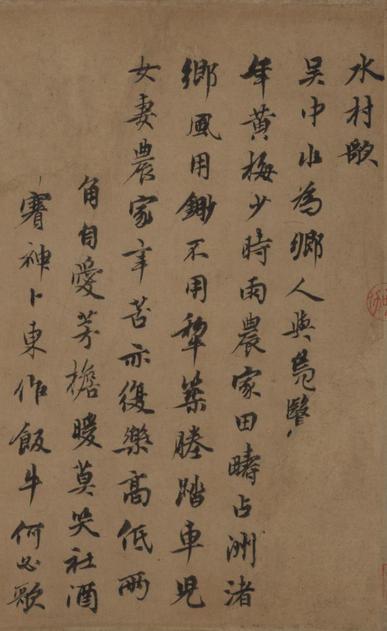 水村歌
吴中水為鄉人與鳧鷖
年黄梅少時雨農家田疇占洲渚
鄉風用鋤不用犂築塍踏車児
女妻農家事苦亦復樂高低兩
角自愛茅檐暖莫笑社酒
賽神卜東作飯牛何必歌